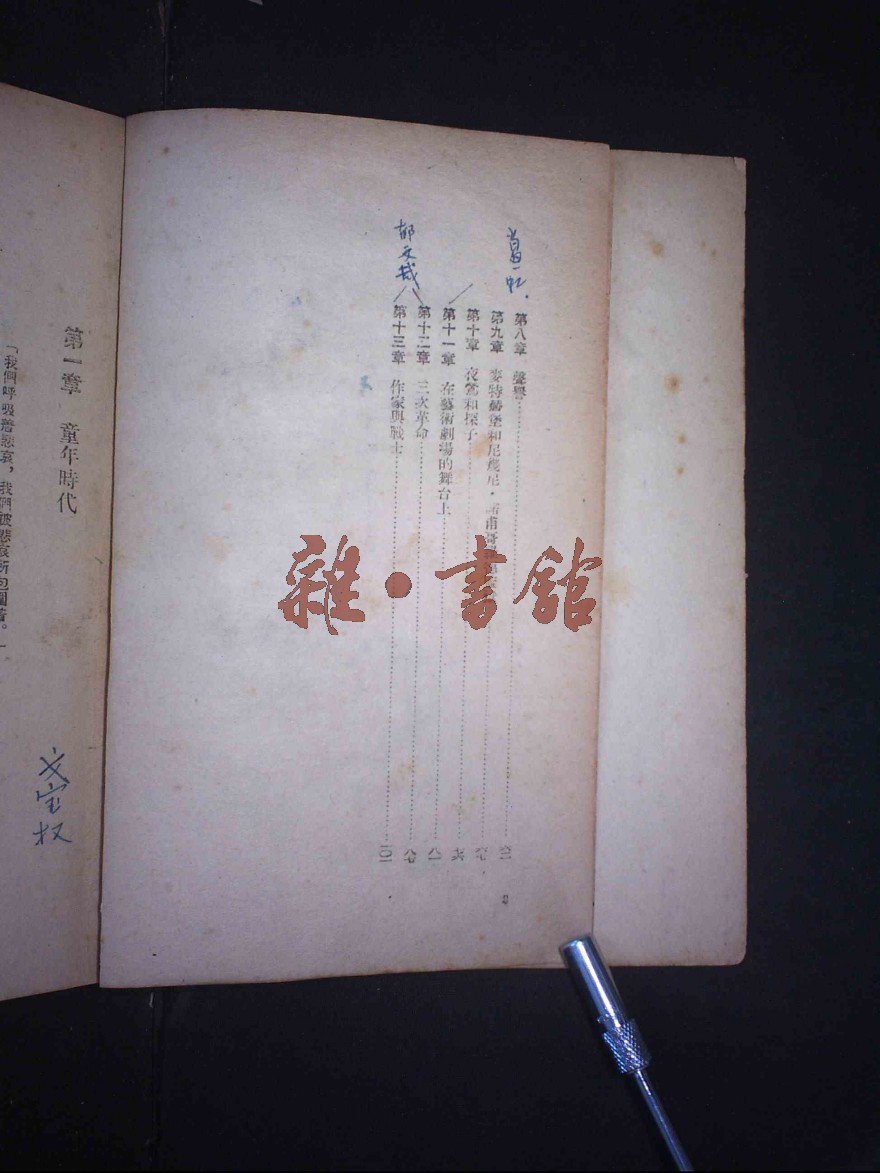 葛一虹
郁文哉
第八章　聲譽……六一
第九章　麥特赫堡和尼幾尼·
第十章　夜鶯和探子……七六
第十一章　在藝術劇場的舞台上……八一
第十二章　三次革命……八七
第十三章　作家與戰士……一〇一
第一章　童年時代
「我們呼吸着悲哀，我們被悲哀所包圍着。
戈宝权
雜·書館